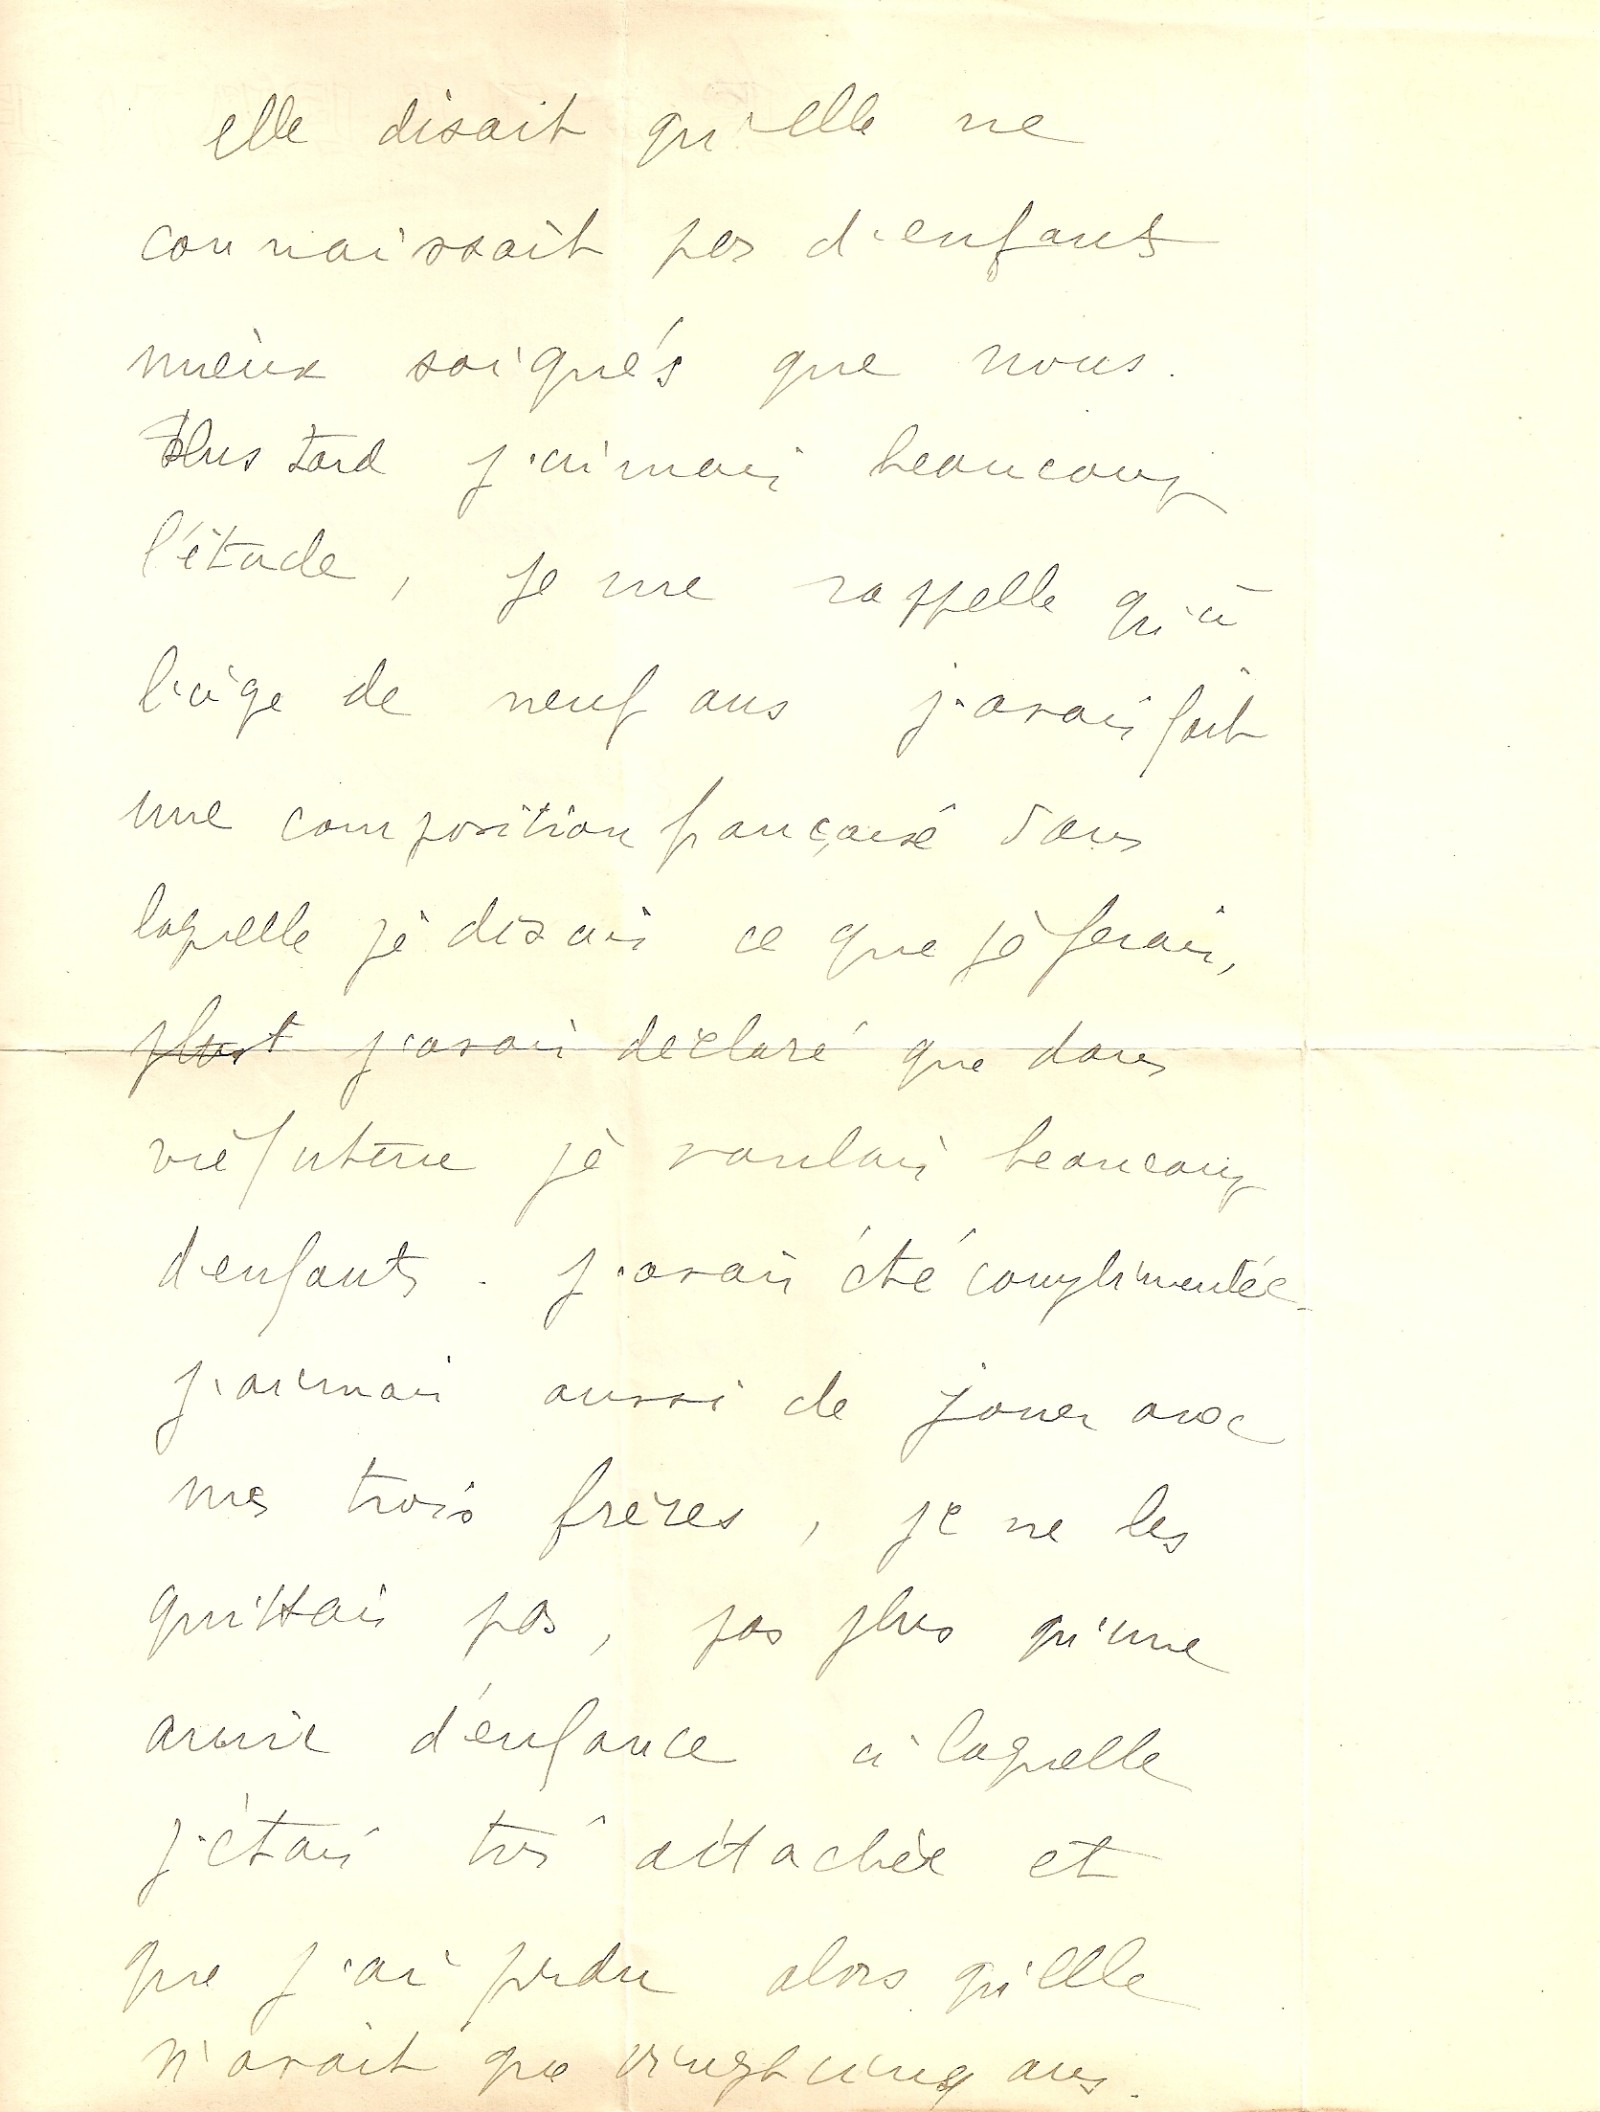 elle disait qu'elle ne
connaissait pas d'enfants
mieux soignés que nous.
Plus tard j'aimais beaucoup
l'étude, je me rappelle qu'à
l'âge de neuf ans j'avais fait
une composition française dans
laquelle je disais ce que je ferais,
plus t j'avais déclaré que dans
vie future je voulais beaucoup
d'enfants. j'avais été complimentée.
j'aimais aussi de jouer avec
mes trois frères, je ne les
quittais pas, pas plus qu'une
amie d'enfance à laquelle
j'étais très attachée et
que j'ai perdu alors qu'elle
n'avait que vingt cinq ans.